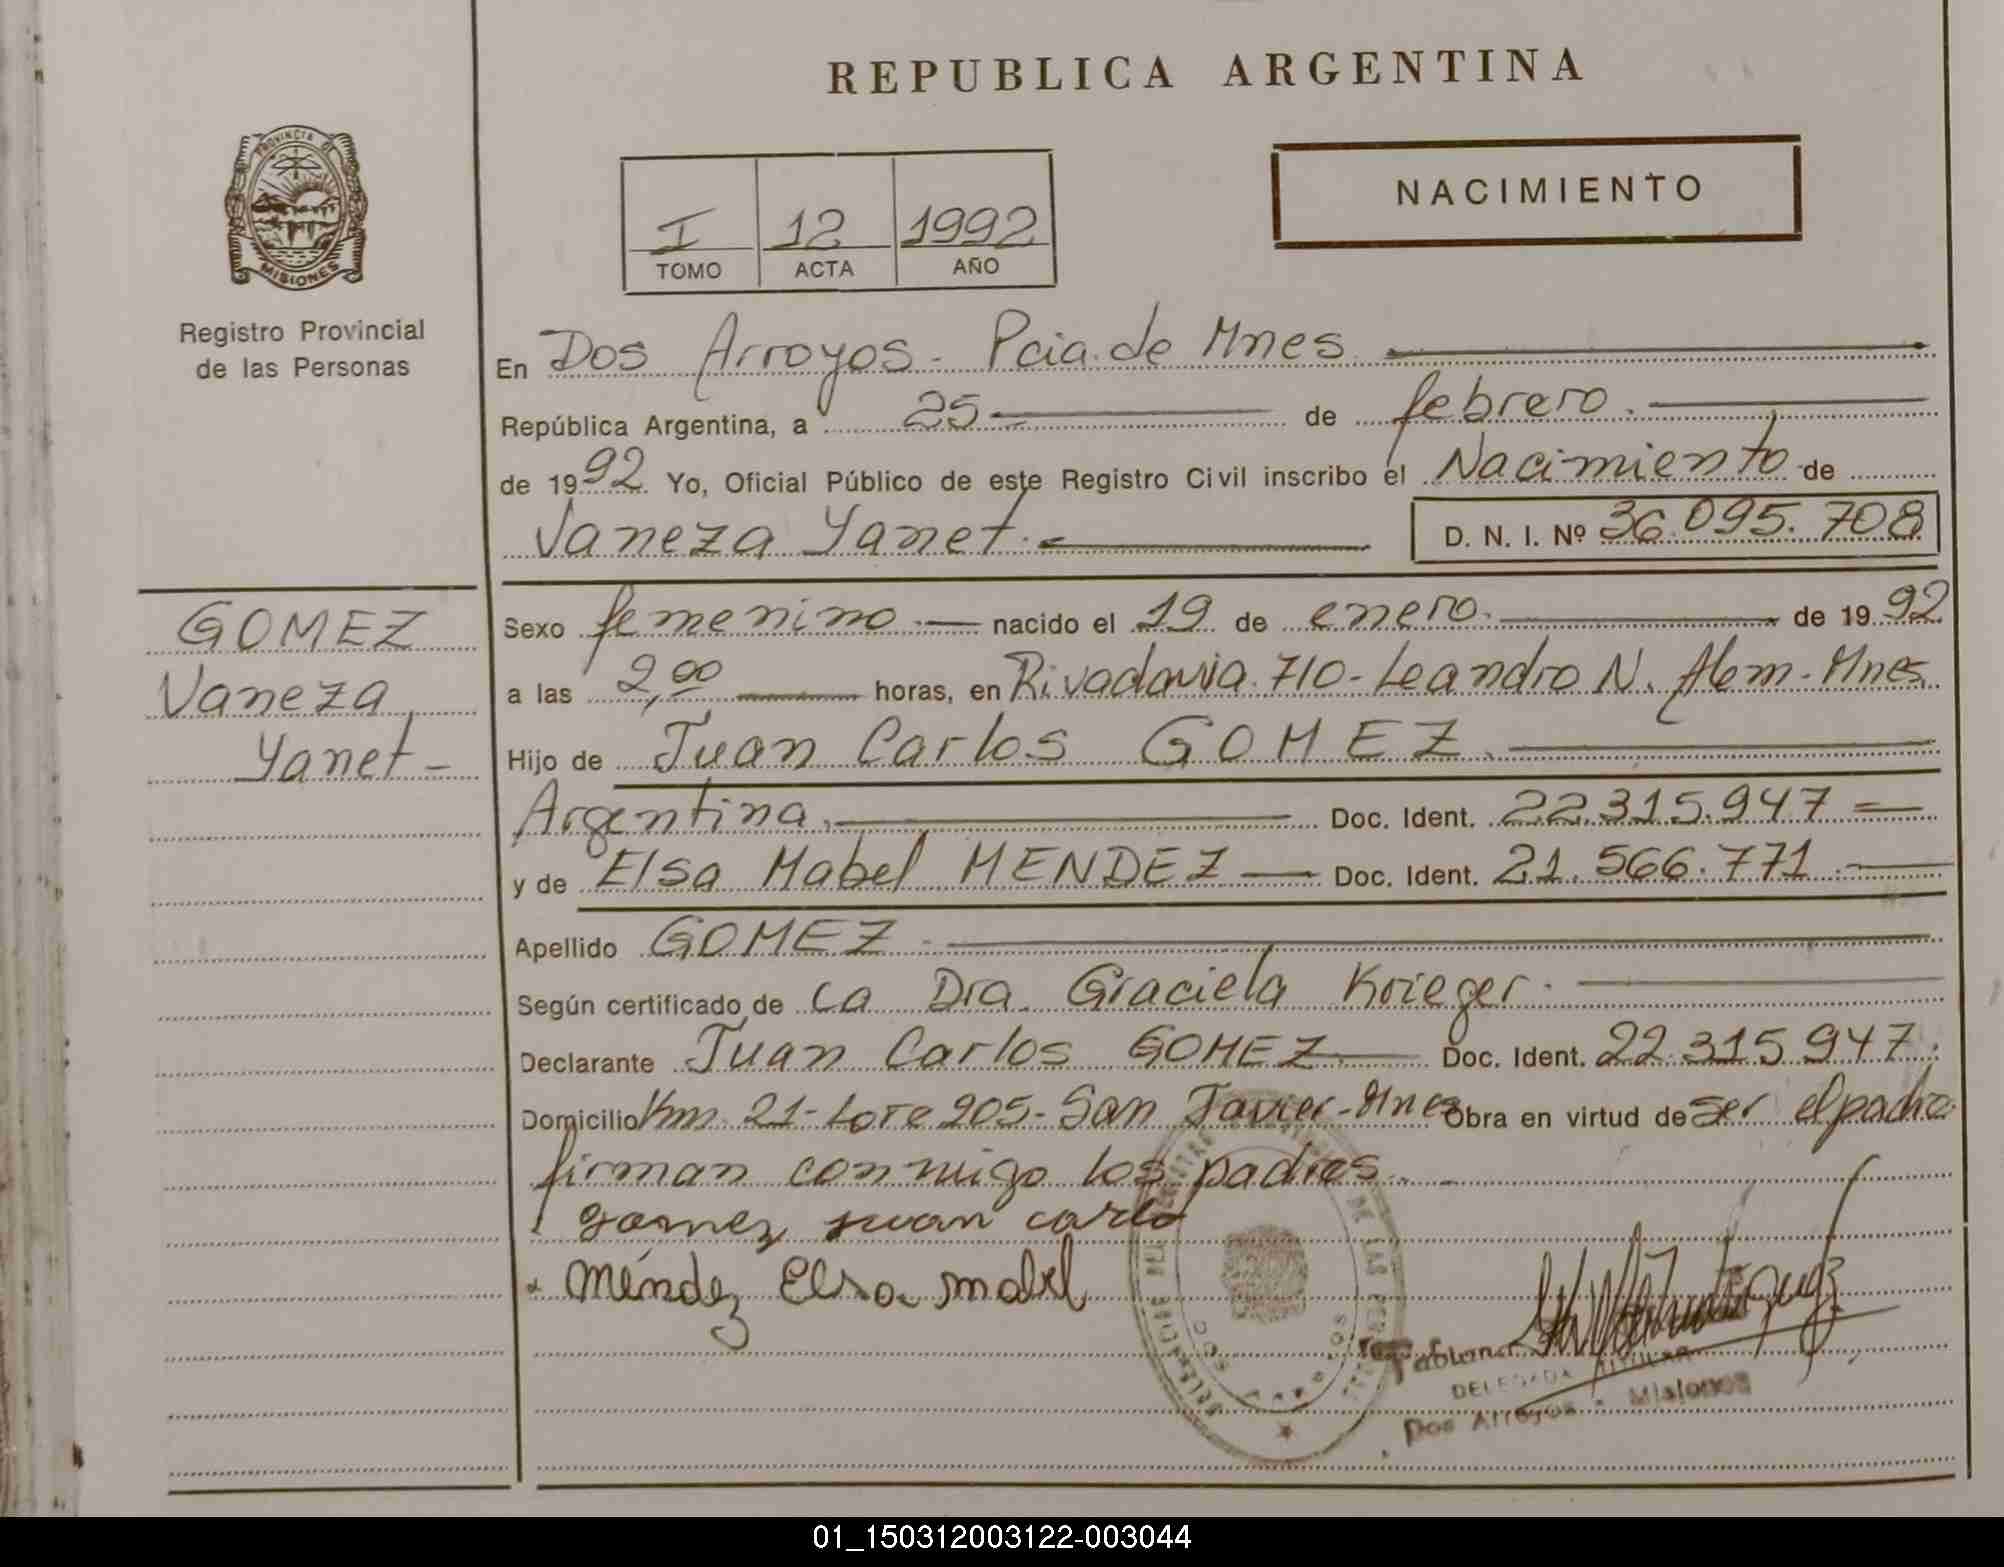 REPUBLICA ARGENTINA
PROVINCIA DE
MISIONES
Registro Provincial
de las Personas
I 12 1992
TOMO ACTA AÑO
NACIMIENTO
En Dos Arroyos - Pcia. de Mnes
República Argentina, a 25 de febrero.
de 1992 Yo, Oficial Público de este Registro Civil inscribo el Nacimiento de
Vaneza Yanet. D. N. I. Nº 36.095.708
GOMEZ
Vaneza
Yanet -
Sexo femenino. nacido el 19 de enero. de 1992
a las 2,00 horas, en Rivadavia 710 - Leandro N. Alem - Mnes
Hijo de Juan Carlos GOMEZ.
Argentina. Doc. Ident. 22.315.947
y de Elsa Mabel MENDEZ Doc. Ident. 21.566.771
Apellido GOMEZ.
Según certificado de la Dra. Graciela Krieger.
Declarante Juan Carlos GOMEZ Doc. Ident. 22.315.947.
Domicilio Km. 21 - Lote 205 - San Javier - Mnes Obra en virtud de ser el padre.
firman conmigo los padres.
gomez juan carlo
Méndez Elsa mabel
DELEGADA TITULAR
Dos Arroyos - Misiones
01_150312003122-003044